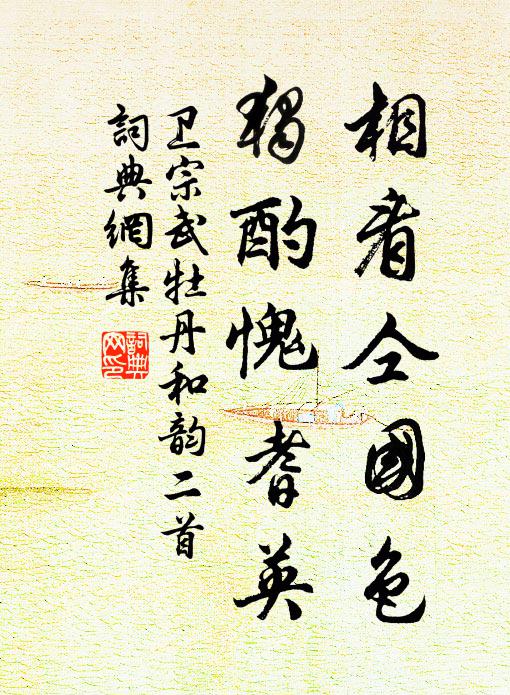 相看仝國色
獨酌愧耆英
卫宗武牡丹和韵二首
詞典網集
詞典
网印